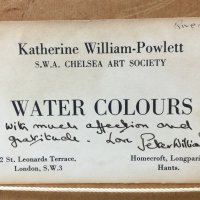 Katherine William-Powlett
S.W.A. CHELSEA ART SOCIETY
WATER COLOURS
with much affection and
gratitude. Peter William
2 St. Leonards Terrace,
London, S.W.3
Homecroft, Longpari
Hants.